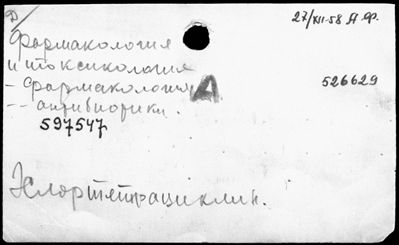 Д
27/XII-58 Д.Ф.
Фармакология
и токсикология
- Фармакология А
526629
-- антибиотики.
597547
Хлортетрациклин.